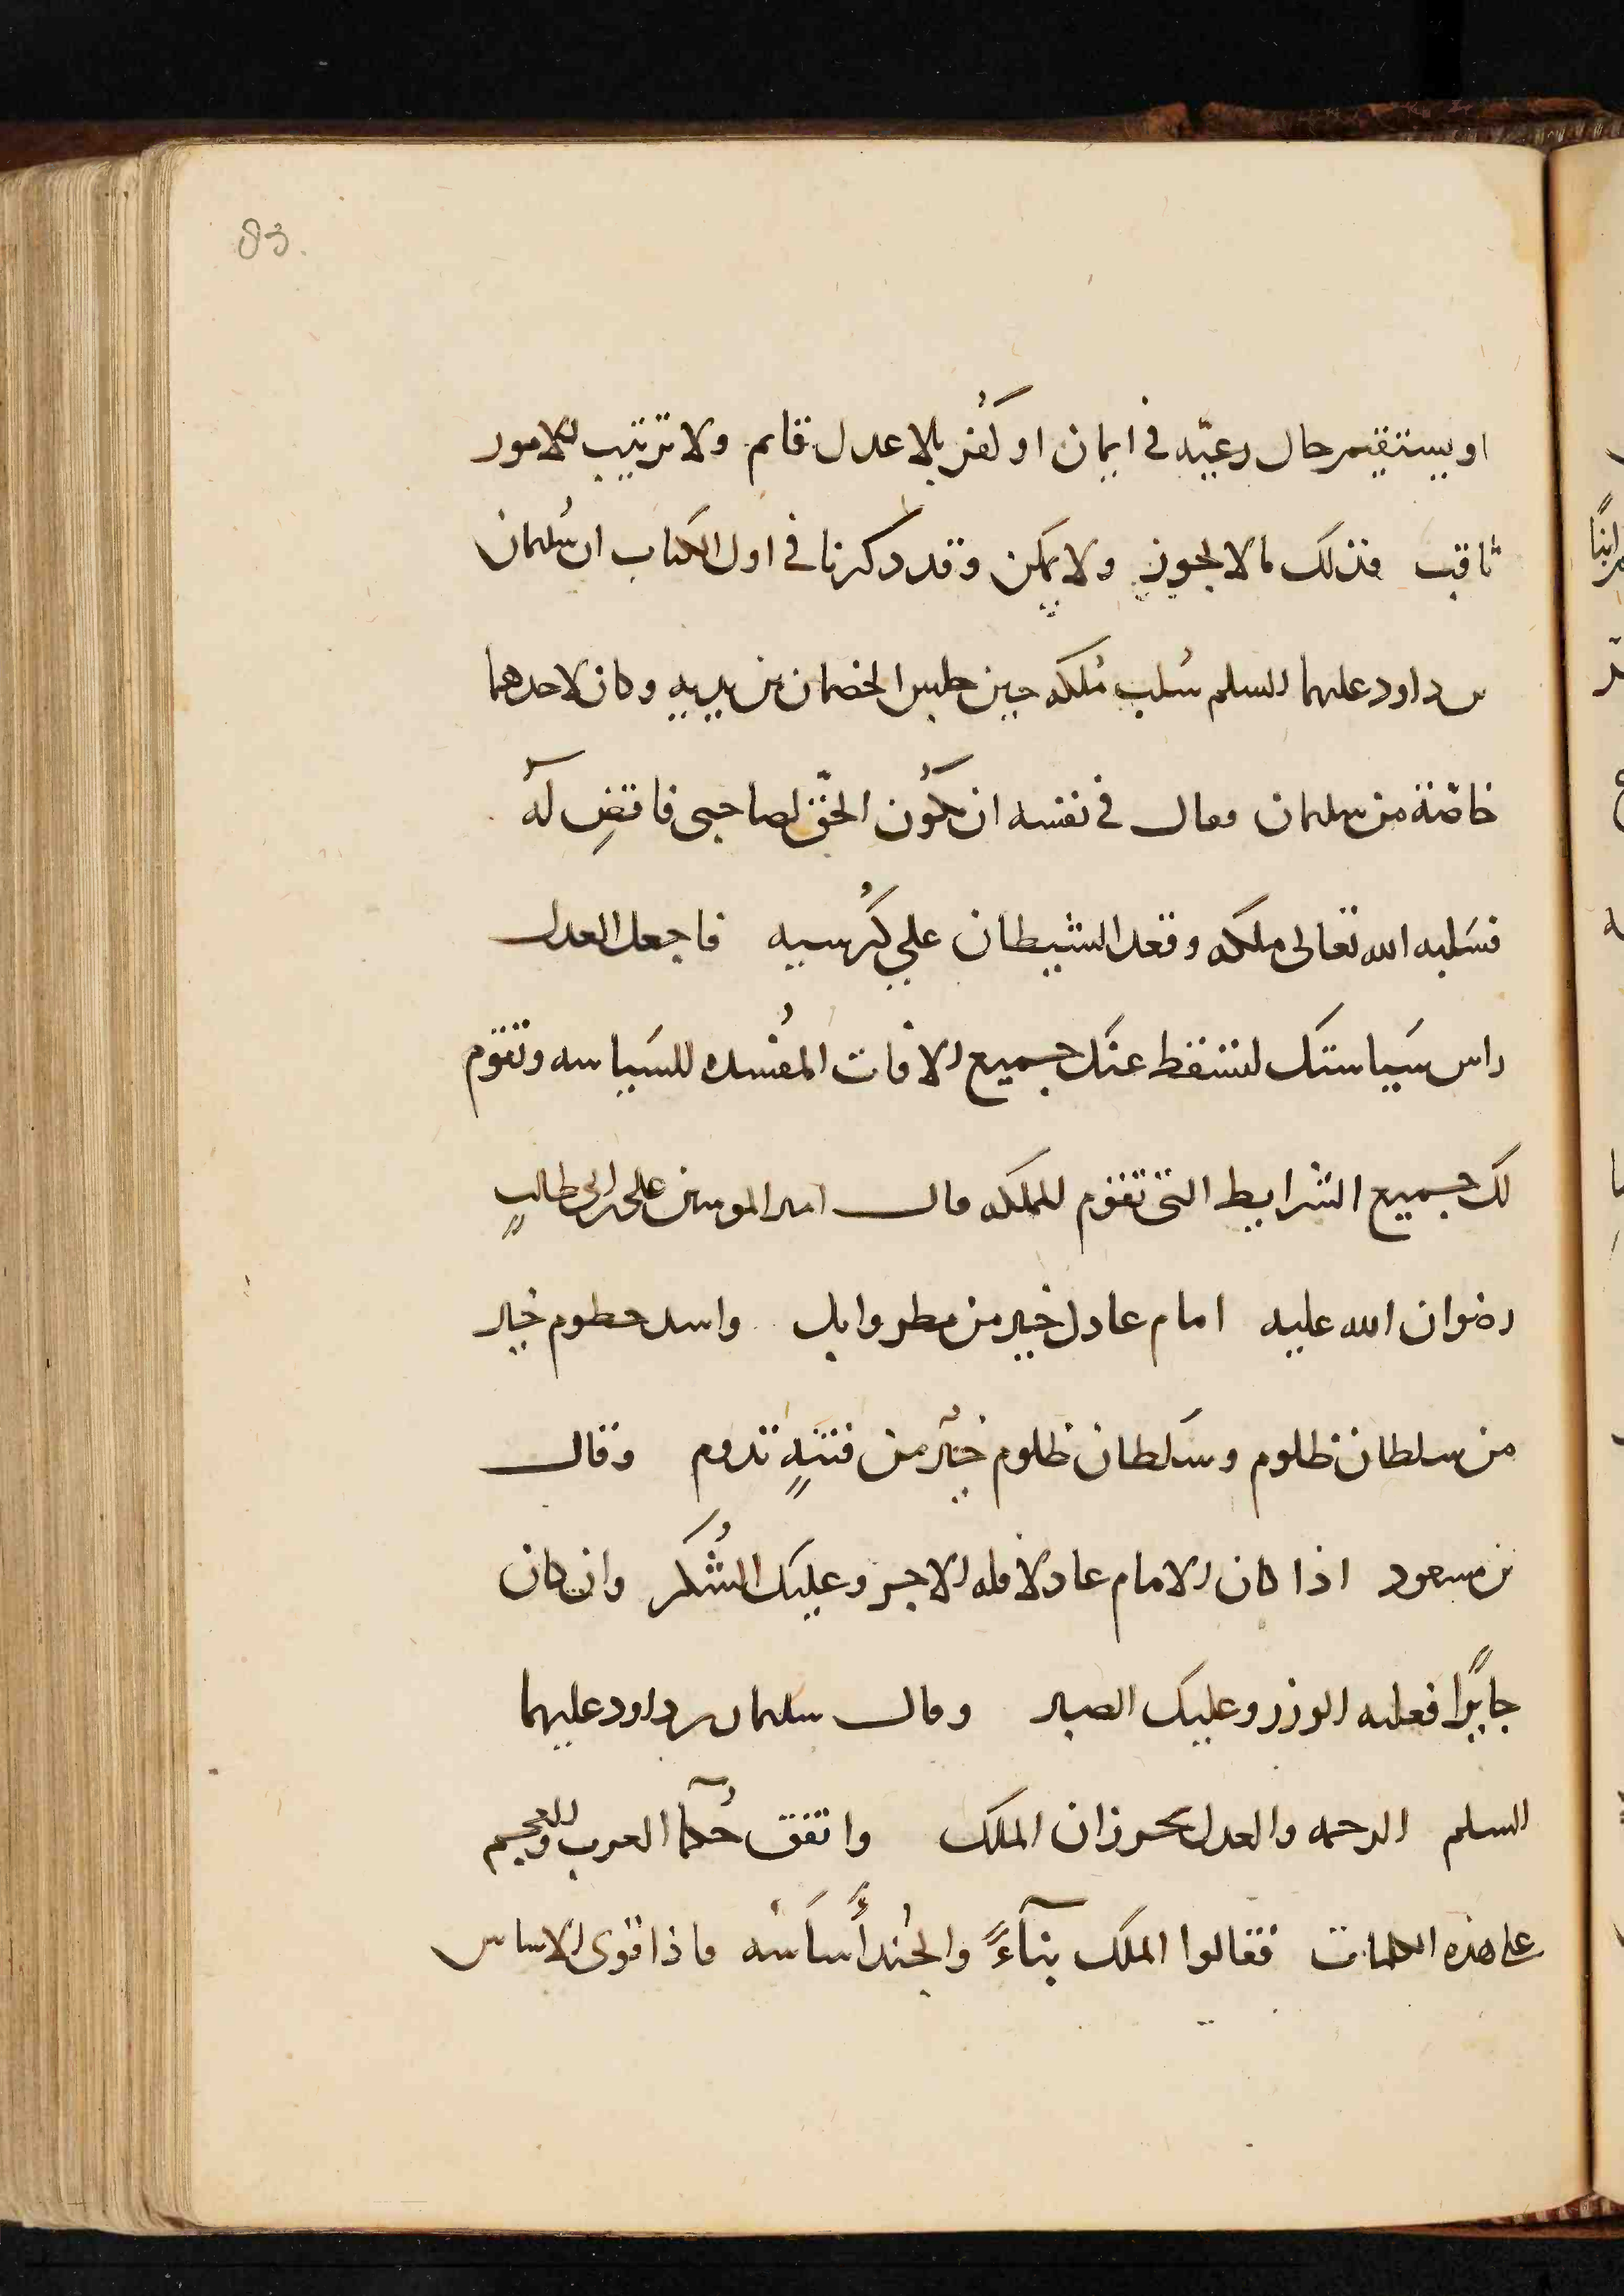 83.
او يستقيم حال رعيّه في ايمان او كُفر بلا عدل قايم ولا ترتيب للامور
ثاقب فذلك مالا يجوز ولا يمكن وقد ذكرنا في اول الكتاب ان سُليمان
بن داود عليهما السلم سُلب مُلكه حين جلس الخصمان بين يديه وكان لاحدهما
خاصّة من سليمان وقال في نفسه ان يكُون الحقّ لصاحبي فاقضِ لهُ
فسَلبه الله تعالى ملكه وقعد الشيطان علي كُرسيه فاجعل العدل
راس سَياستك لتسقط عنك جميع الافات المفُسده للسَياسه وتقوم
لك جميع الشرايط التي تقوم للملكه قال امير المومنين علي بن ابي طالبٍ
رضوان الله عليه امام عادل خير من مطر وابل واسد حطوم خير
من سلطان ظلوم وسَلطان ظلوم خير من فتنةٍ تدوم وقال
بن مسعود اذا كان الامام عادلا فله الاجر وعليك الشُكر وان كان
جايرًا فعليه الوزر وعليك الصبر وقال سليمان بن داود عليهما
السلم الرحمه والعدل يحرزان الملك واتفق حُكمآ العرب والعجم
على هذه الكلمات فقالوا الملك بنآءً والجُند أَساسَه فاذا قوى الاساس